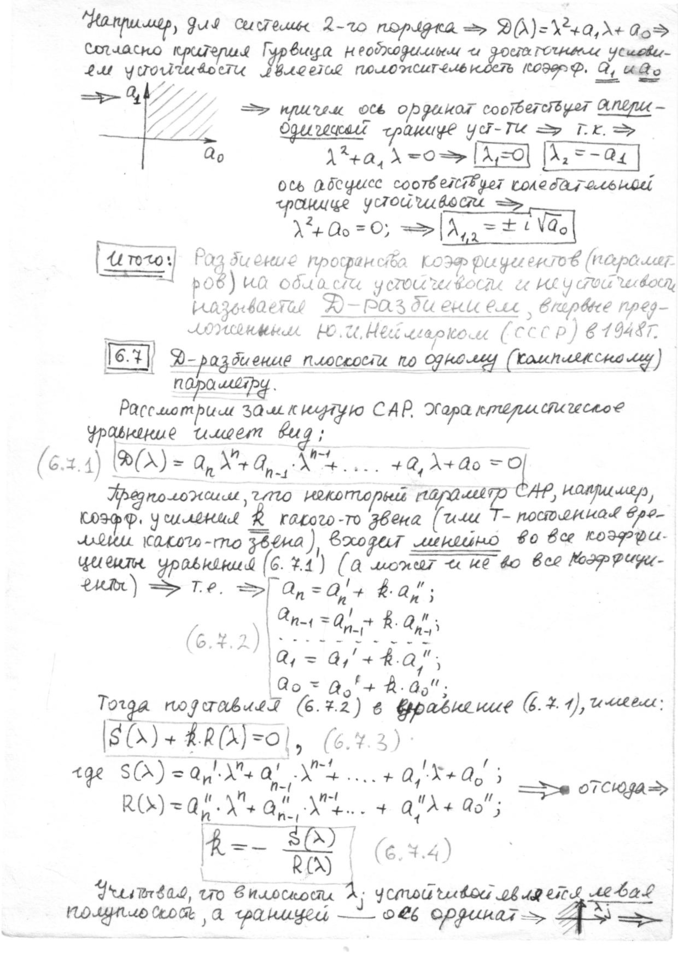 Например, для системы 2-го порядка ⇒ D(λ)=λ²+a₁λ+a₀⇒
согласно критерия Гурвица необходимым и достаточным услови-
ем устойчивости является положительность коэфф. a₁ и a₀
⇒ a₁
a₀
⇒ причем ось ординат соответствует апери-
одической границе уст-ти ⇒ т.к. ⇒
λ²+a₁λ=0 ⇒ λ₁=0 λ₂=-a₁
ось абсцисс соответствует колебательной
границе устойчивости ⇒
λ²+a₀=0; ⇒ λ₁,₂=±i√a₀
Итого: Разбиение пространства коэффициентов (парамет-
ров) на области устойчивости и неустойчивости
называется D-разбиением, впервые пред-
ложенным Ю.И.Неймарком (СССР) в 1948г.
6.7 D-разбиение плоскости по одному (комплексному)
параметру.
Рассмотрим замкнутую САР. Характеристическое
уравнение имеет вид:
(6.7.1) D(λ) = aₙλⁿ+aₙ₋₁·λⁿ⁻¹+.....+a₁λ+a₀=0
Предположим, что некоторый параметр САР, например,
коэфф. усиления k какого-то звена (или T-постоянная вре-
мени какого-то звена), входит линейно во все коэффи-
циенты уравнения (6.7.1) (а может и не во все коэффици-
енты) ⇒ т.е. ⇒ aₙ=aₙ'+k·aₙ'';
aₙ₋₁=aₙ₋₁'+k·aₙ₋₁'';
(6.7.2)
a₁=a₁'+k·a₁'';
a₀=a₀'+k·a₀'';
Тогда подставляя (6.7.2) в уравнение (6.7.1), имеем:
S(λ)+k·R(λ)=0, (6.7.3)
где S(λ)=aₙ'·λⁿ+aₙ₋₁'·λⁿ⁻¹+....+a₁'·λ+a₀';
R(λ)=aₙ''·λⁿ+aₙ₋₁''·λⁿ⁻¹+...+a₁''λ+a₀''; ⇒ отсюда⇒
k=-S(λ)/R(λ) (6.7.4)
Учитывая, что в плоскости λⱼ устойчивой является левая
полуплоскость, а границей — ось ординат⇒ λⱼ ⇒